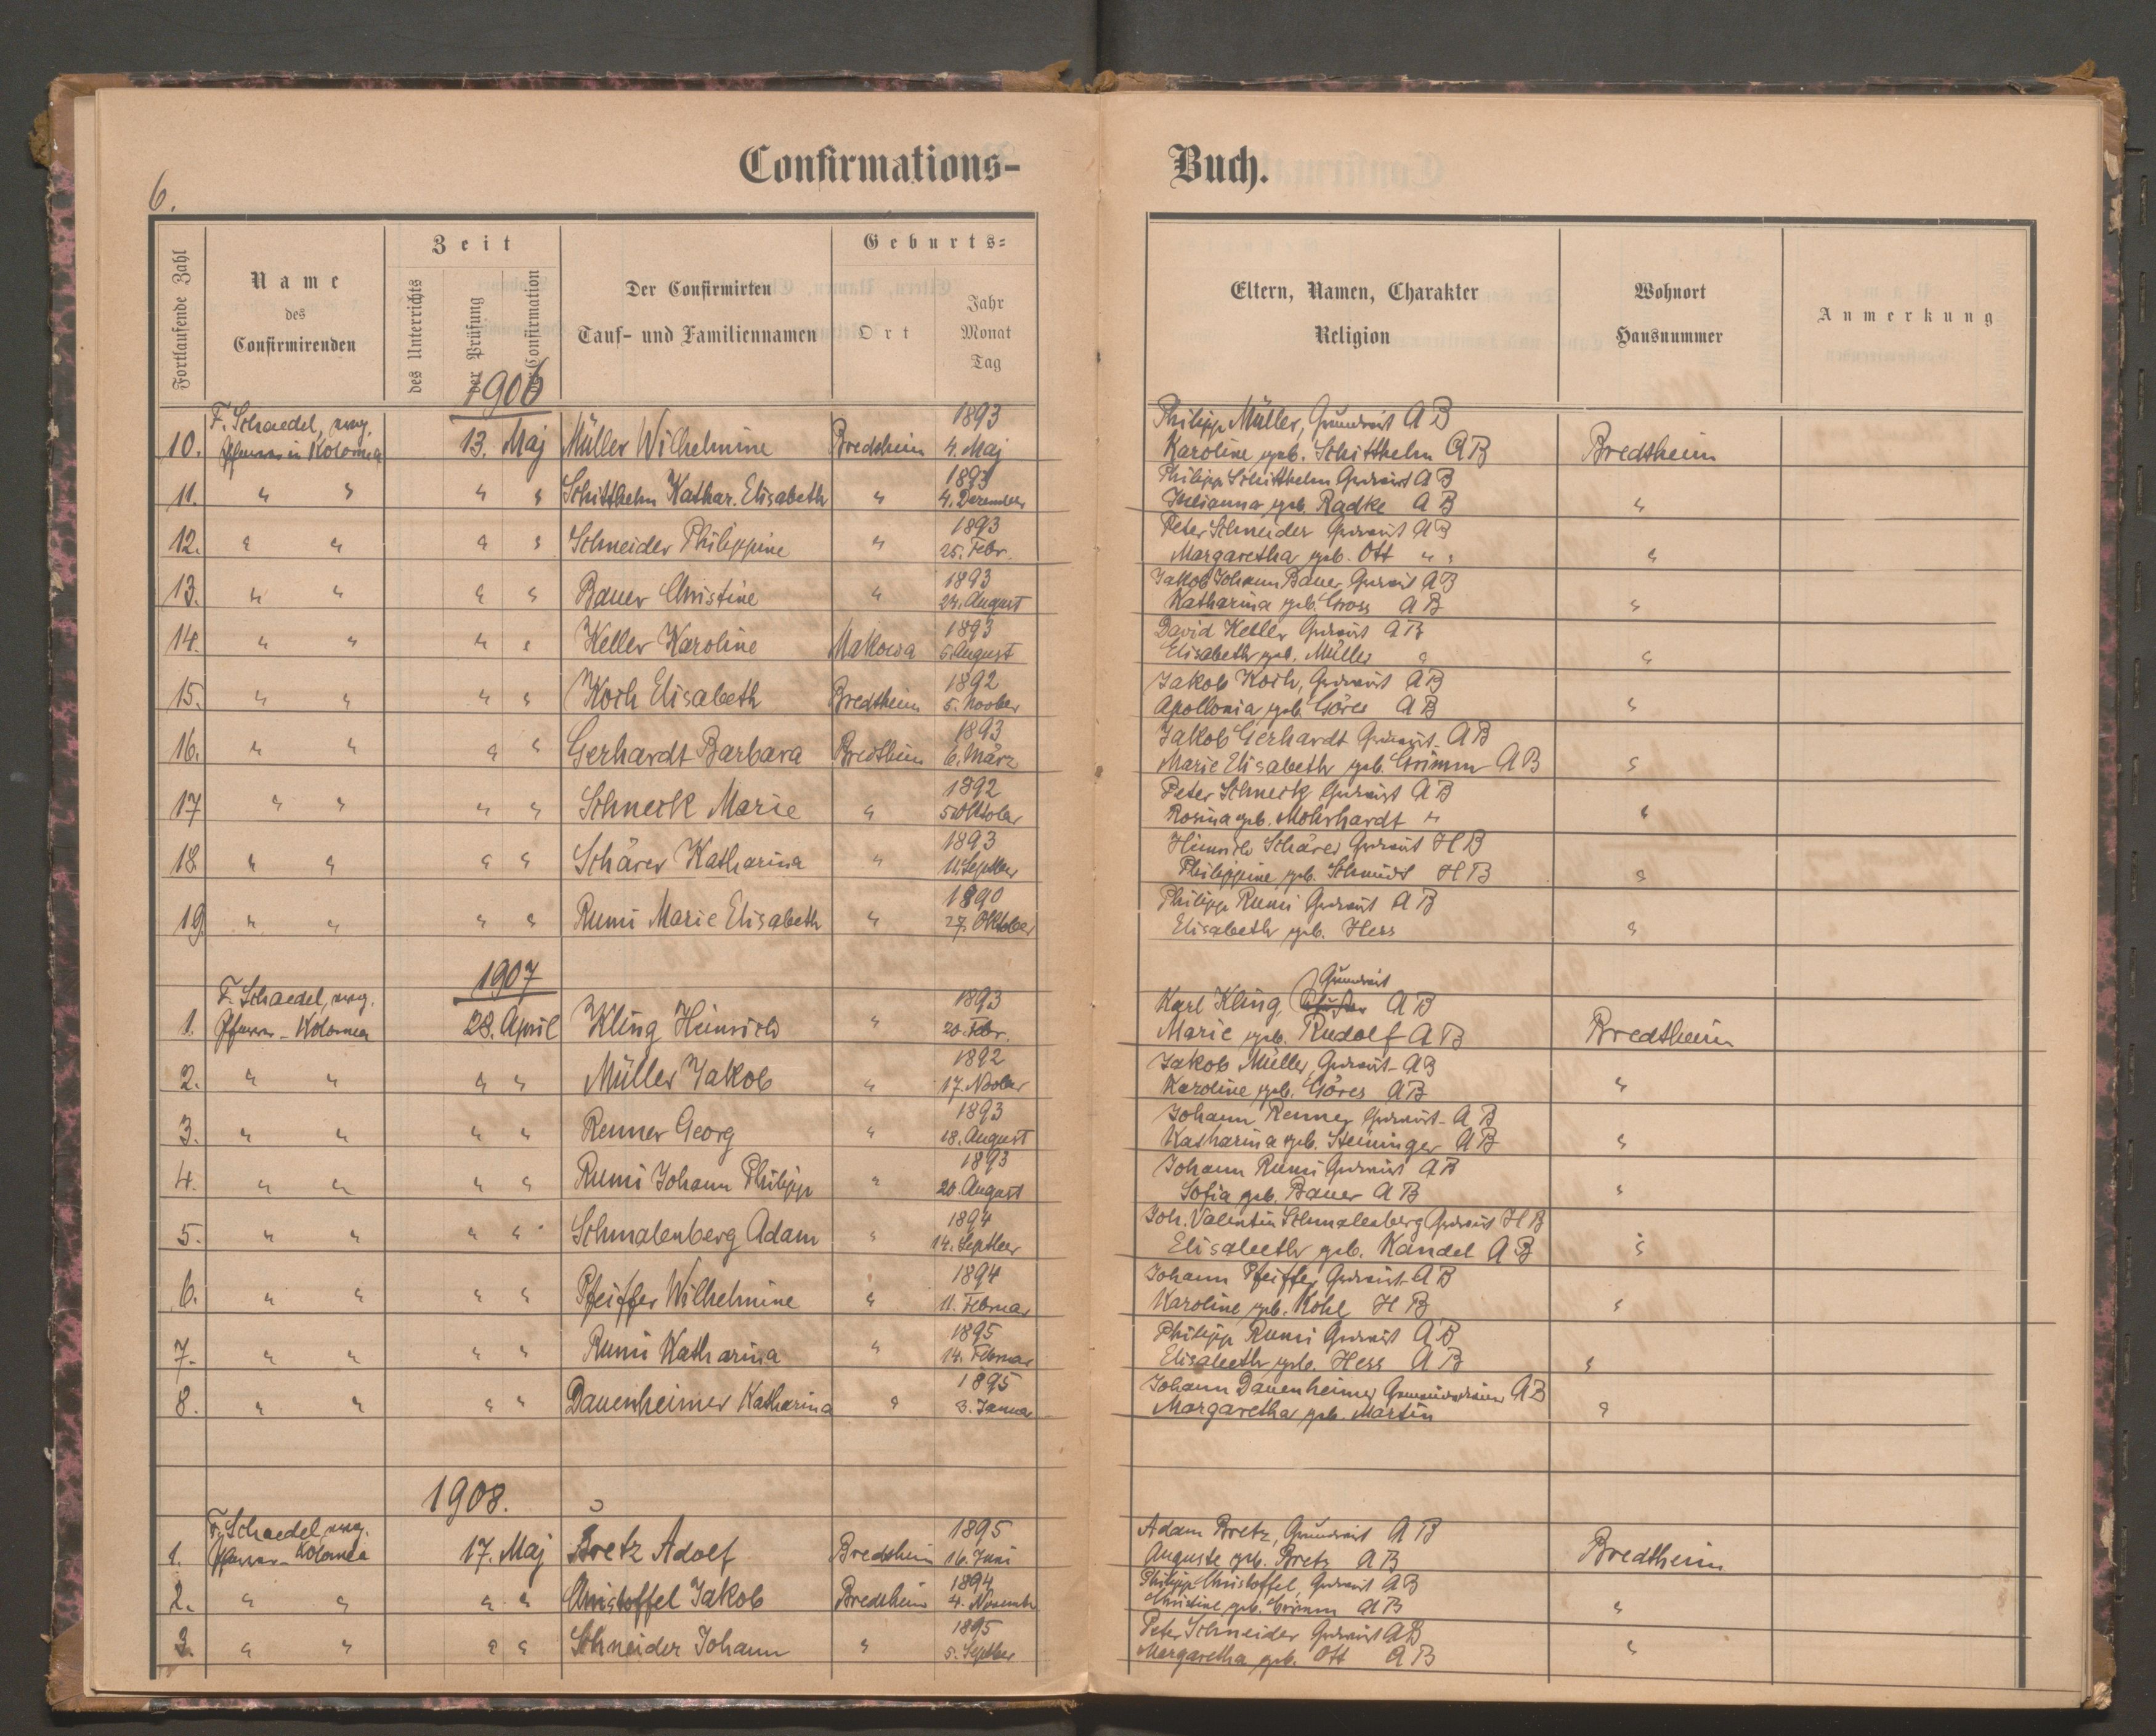 Confirmations-
Buch.
6.
Fortlaufende Zahl
Name
des
Confirmirenden
Zeit
des Unterrichts
der Prüfung
der Confirmation
Der Confirmirten
Tauf- und Familiennamen
Geburts-
Ort
Jahr
Monat
Tag
Eltern, Namen, Charakter
Religion
Wohnort
Hausnummer
Anmerkung
1906
F. Schaedel, evng. 1893 Philipp Müller, Grundwirt AB
10. Pfarrer in Kolomea 13. Maj Müller Wilhelmine Bredtheim 4. Maj Karoline geb. Schitthelm AB Bredtheim
1893 Philipp Schitthelm Grdwirt AB
11. " " " " Schitthelm Kathar. Elisabeth " 4. Dezember Julianna geb. Radke AB "
1893 Peter Schneider Grdwirt AB
12. " " " " Schneider Philippine " 25. Febr. Margaretha geb. Ott " " "
1893 Jakob Johann Bauer Grdwirt AB
13. " " " " Bauer Christine " 24. August Katharina geb. Gross AB "
1893 David Keller Grdwirt AB
14. " " " " Keller Karoline Makowa 6. August Elisabeth geb. Müller " "
1892 Jakob Koch, Grdwirt AB
15. " " " " Koch Elisabeth Bredtheim 5. Novber Apollonia geb. Göres AB "
1893 Jakob Gerhardt Grdwirt AB
16. " " " " Gerhardt Barbara Bredtheim 6. März Marie Elisabeth geb. Grimm AB "
1892 Peter Schneck Grdwirt AB
17 " " " " Schneck Marie " 5 Oktober Rosina geb. Mohrhardt " "
1893 Heinrich Schärer Grdwirt HB
18. " " " " Schärer Katharina " 11. Septber Philippine geb. Schmidt HB "
1890 Philipp Rumi Grdwirt AB
19. " " " " Rumi Marie Elisabeth " 27. Oktober Elisabeth geb. Hess "
1907 Grundwirt
F. Schaedel, evng. 1893 Karl Kling, AB
1. Pfarrer - Kolomea 28. April Kling Heinrich " 20. Febr. Marie geb. Rudolf AB Bredtheim
1892 Jakob Müller, Grdwirt - AB
2. " " " " Müller Jakob " 17. Novber Karoline geb. Göres AB "
1893 Johann Renner Grdwirt - AB
3. " " " " Renner Georg " 18. August Katharina geb. Steininger AB "
1893 Johann Rumi Grdwirt AB
4. " " " " Rumi Johann Philipp " 20. August Sofia geb. Bauer AB "
1894 Joh. Valentin Schmalenberg Grdwirt HB
5. " " " " Schmalenberg Adam " 14. Septber Elisabeth geb. Kandel AB "
1894 Johann Pfeiffer Grdwirt - AB
6. " " " " Pfeiffer Wilhelmine " 11. Februar Karoline geb. Kohl HB "
1895 Philipp Rumi Grdwirt AB
7. " " " " Rumi Katharina " 14. Februar Elisabeth geb. Hess AB "
1895 Johann Dauenheimer AB
8. " " " " Dauenheimer Katharina " 3. Januar Margaretha geb. Martin "
1908.
F. Schaedel evng. 1895 Adam Bretz, Grundwirt AB
1. Pfarrer - Kolomea 17. Maj Bretz Adolf Bredtheim 16. Juni Auguste geb. Bretz AB Bredtheim
1894 Philipp Christoffel, Grdwirt AB
2. " " " " Christoffel Jakob Bredtheim 4. Novembr Christine geb. Grimm AB "
1895 Peter Schneider Grdwirt AB
3. " " " " Schneider Johann " 5. Septber Margaretha geb. Ott AB "